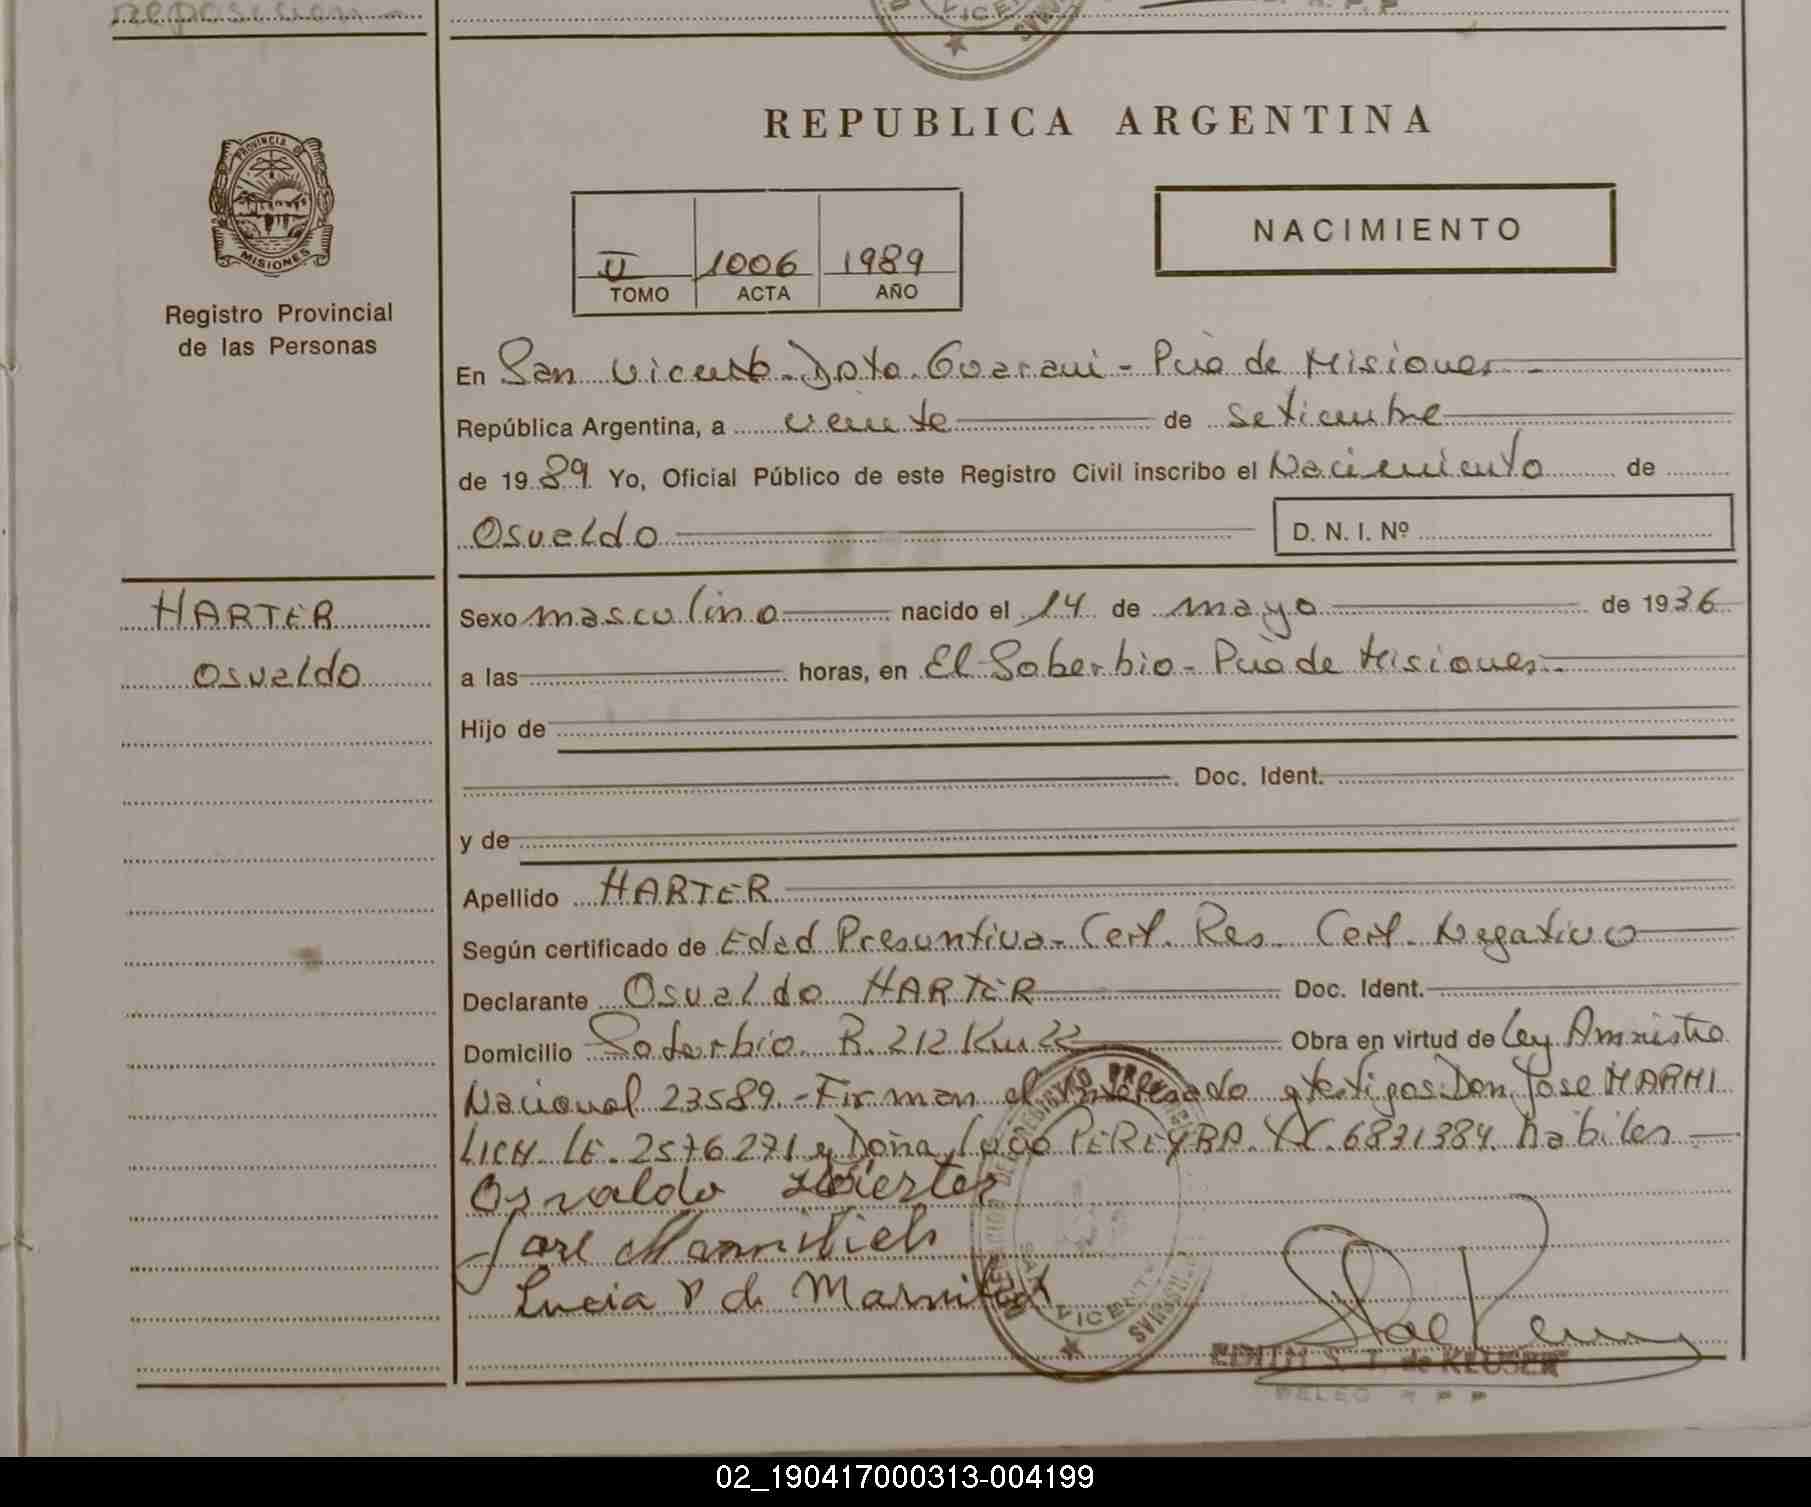 reposición -
REPUBLICA ARGENTINA
PROVINCIA D
MISIONES
Registro Provincial
de las Personas
II 1006 1989
TOMO ACTA AÑO
NACIMIENTO
En San Vicente - Dpto. Guarani - Pcia de Misiones -
República Argentina, a veinte de setiembre
de 1989 Yo, Oficial Público de este Registro Civil inscribo el Nacimiento de
Osvaldo D. N. I. Nº
HARTER
Osvaldo
Sexo masculino nacido el 14 de mayo de 1936
a las horas, en El Soberbio - Pcia de Misiones -
Hijo de
Doc. Ident.
y de
Apellido HARTER
Según certificado de Edad Presuntiva - Cert. Res. Cert. Negativo
Declarante Osvaldo HARTER Doc. Ident.
Domicilio Soberbio R. 212 Km 22 Obra en virtud de Ley Amnistia
Nacional 23589. - Firman el interesado y testigos: Don Jose MARMI
LICH LE. 2576271 y Doña Lucia PEREYRA LC. 6831384. habiles
Osvaldo
Jose
Lucia P de
VICENTE
MISIONES
EDITH S. T. de KEUSER